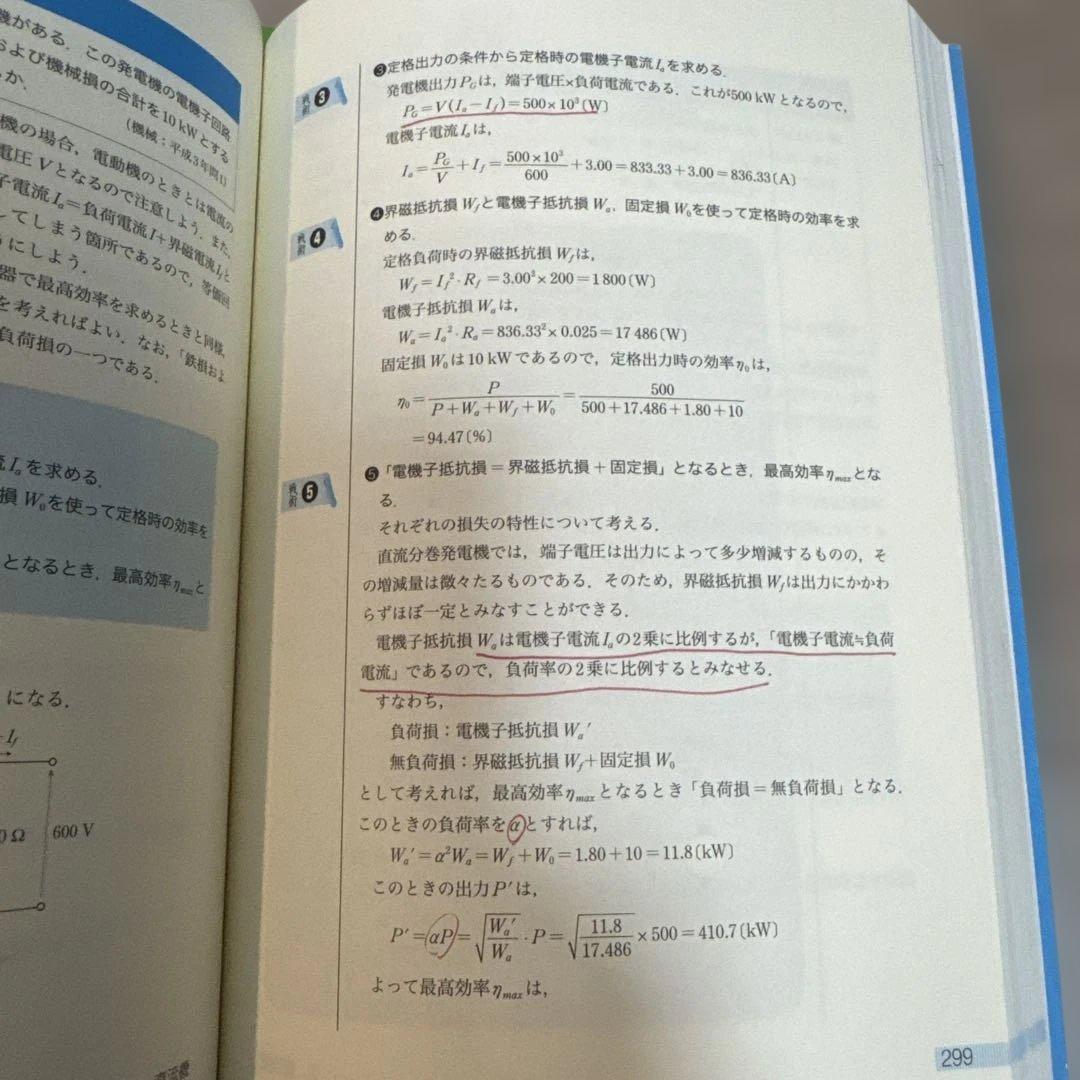 機がある．この発電機の電機子回路
および機械損の合計を10kWとする
か．
(機械：平成3年問1)
機の場合，電動機のときとは電流の
電圧Vとなるので注意しよう．また，
子電流Ia=負荷電流I+界磁電流Ifと
してしまう箇所であるので，等価回
うにしよう．
器で最高効率を求めるときと同様，
を考えればよい．なお，「鉄損およ
負荷損の一つである．
流Iaを求める．
損W0を使って定格時の効率を
となるとき，最高効率ηmaxと
になる．
If
0Ω
600 V
直流機
戦術❸
❸定格出力の条件から定格時の電機子電流Iaを求める．
発電機出力PGは，端子電圧×負荷電流である．これが500 kWとなるので，
PG=V(Ia−If)=500×10³(W)
電機子電流Iaは，
Ia=PG/V+If=500×10³/600+3.00=833.33+3.00=836.33(A)
戦術❹
❹界磁抵抗損Wfと電機子抵抗損Wa，固定損W0を使って定格時の効率を求
める．
定格負荷時の界磁抵抗損Wfは，
Wf=If²·Rf=3.00²×200=1800(W)
電機子抵抗損Waは，
Wa=Ia²·Ra=836.33²×0.025=17 486(W)
固定損W0は10 kWであるので，定格出力時の効率η0は，
η0=P/(P+Wa+Wf+W0)=500/(500+17.486+1.80+10)
=94.47(%)
戦術❺
❺「電機子抵抗損=界磁抵抗損+固定損」となるとき，最高効率ηmaxとな
る．
それぞれの損失の特性について考える．
直流分巻発電機では，端子電圧は出力によって多少増減するものの，そ
の増減量は微々たるものである．そのため，界磁抵抗損Wfは出力にかかわ
らずほぼ一定とみなすことができる．
電機子抵抗損Waは電機子電流Iaの2乗に比例するが，「電機子電流≒負荷
電流」であるので，負荷率の2乗に比例するとみなせる．
すなわち，
負荷損：電機子抵抗損Wa′
無負荷損：界磁抵抗損Wf+固定損W0
として考えれば，最高効率ηmaxとなるとき「負荷損=無負荷損」となる．
このときの負荷率をαとすれば，
Wa′=α²Wa=Wf+W0=1.80+10=11.8(kW)
このときの出力P′は，
P′=αP=√(Wa′/Wa)·P=√(11.8/17.486)×500=410.7(kW)
よって最高効率ηmaxは，
299